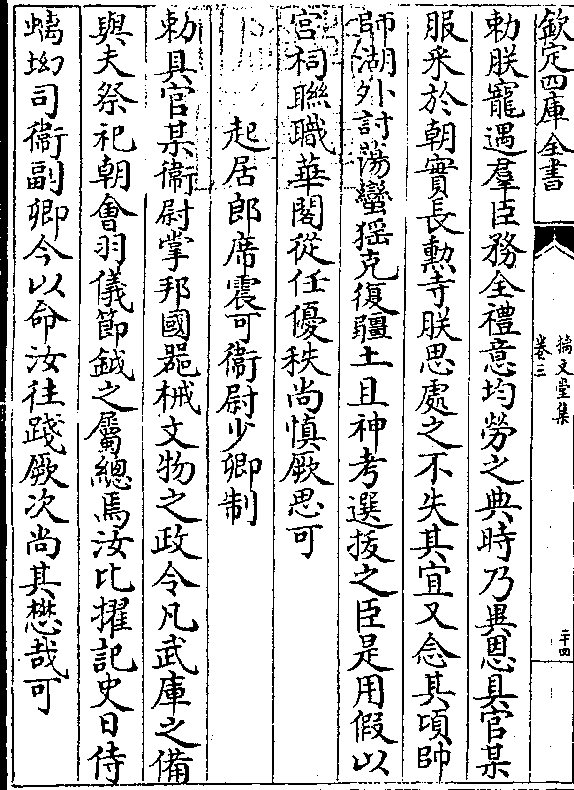 欽定四庫全書
摛文堂集
卷三
二十四
勅朕寵遇羣臣務全禮意均勞之典時乃異恩具官某
服采於朝實長勲寺朕思處之不失其宜又念其頃帥
師湖外討蕩蠻猺克復疆土且神考選抜之臣是用假以
宫祠聯職華閣從任優秩尚慎厥思可
起居郎席震可衞尉少卿制
勅具官某衞尉掌邦國器械文物之政令凡武庫之備
與夫祭祀朝會羽儀節鉞之屬總焉汝比擢記史日侍
螭坳司衞副卿今以命汝往踐厥次尚其懋哉可